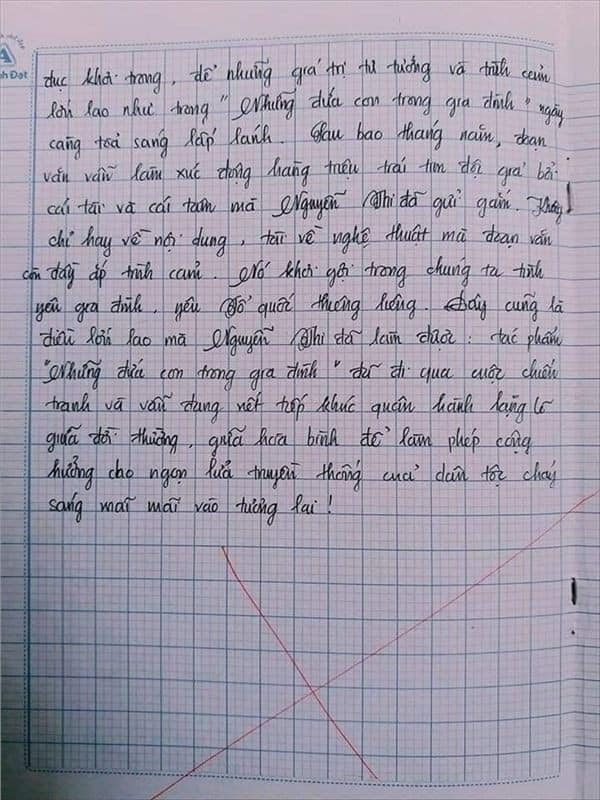 nh Đạt
dục khơi trong, để những giá trị tư tưởng và tình cảm
lớn lao như trong "Những đứa con trong gia đình" ngày
càng toả sáng lấp lánh. Sau bao tháng năm, đoạn
văn vẫn làm xúc động hàng triệu trái tim độc giả bởi
cái tài và cái tâm mà Nguyễn Thi đã gửi gắm. Không
chỉ hay về nội dung, tài về nghệ thuật mà đoạn văn
còn đầy ắp tình cảm. Nó khơi gợi trong chúng ta tình
yêu gia đình, yêu Tổ quốc thương luống. Đây cũng là
điều lớn lao mà Nguyễn Thi đã làm được: tác phẩm
"Những đứa con trong gia đình" đã đi qua cuộc chiến
tranh và vẫn đang viết tiếp khúc quân hành lặng lẽ
giữa đời thường, giữa hoà bình để làm phép cộng
hưởng cho ngọn lửa truyền thống của dân tộc cháy
sáng mãi mãi vào tương lai!